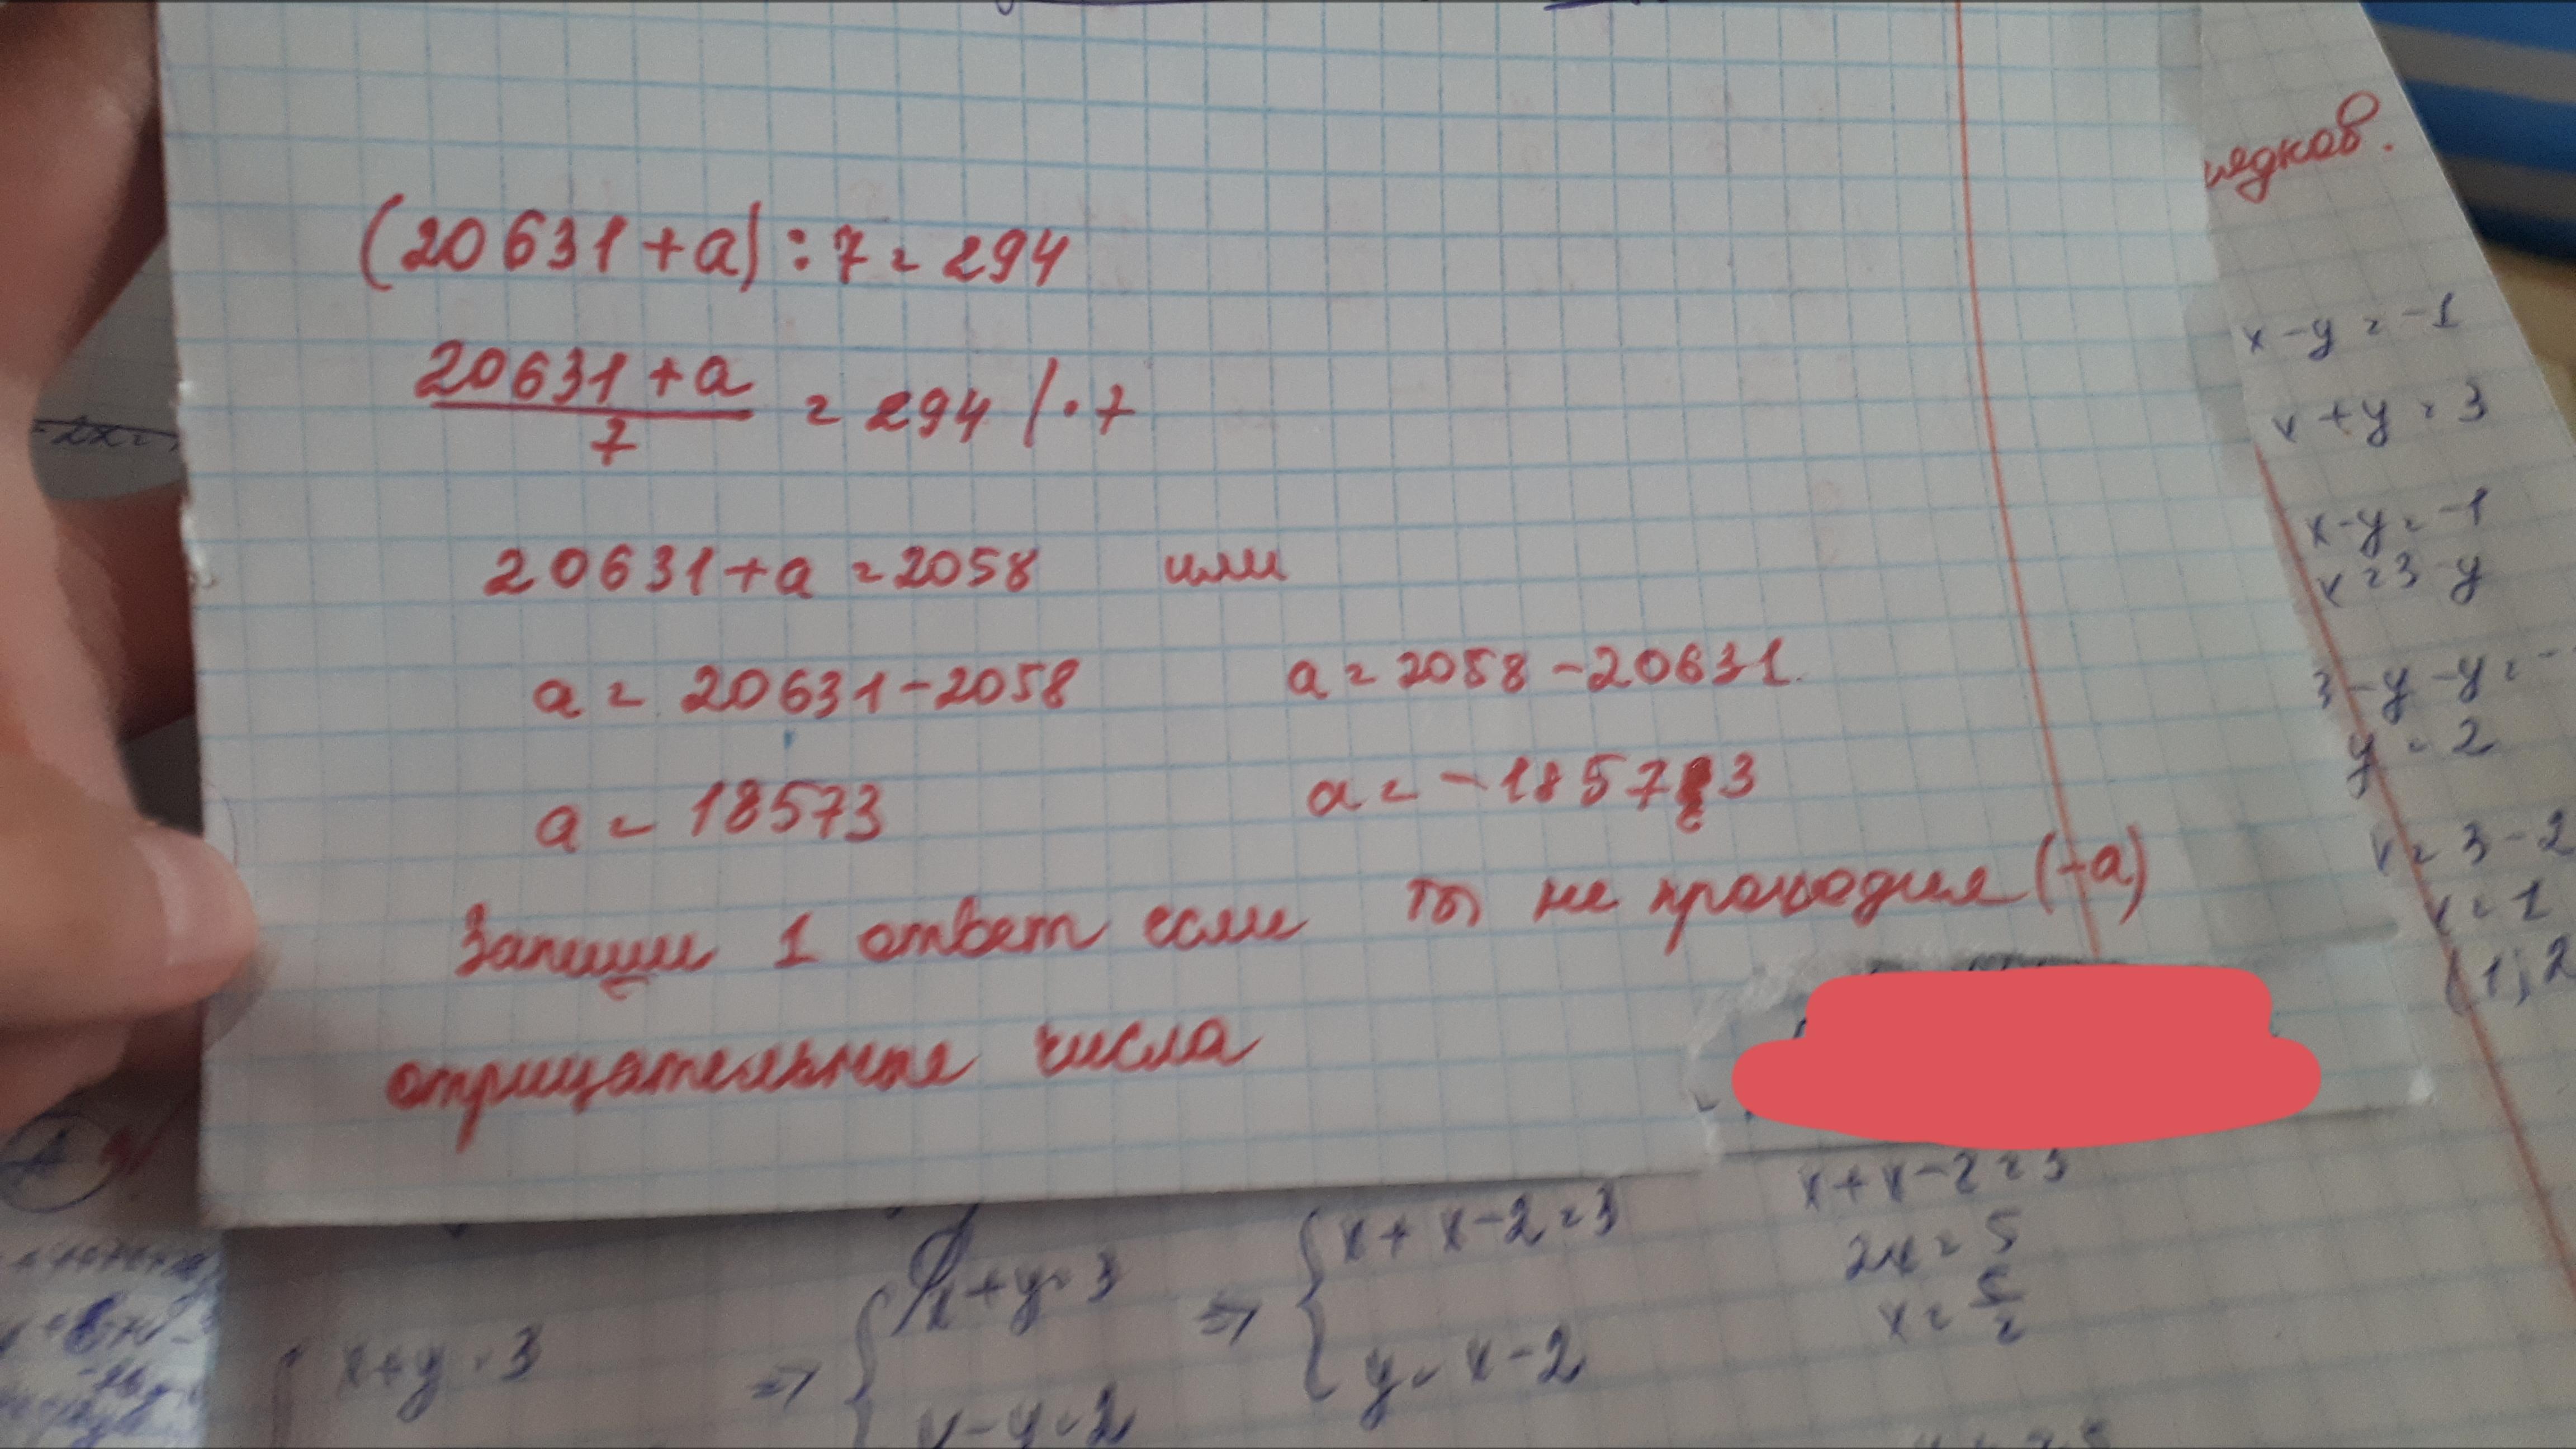 (20631+a):7=294
20631+a
7
=294 |·7
20631+a=2058 или
a=20631-2058 a=2058-20631.
a=18573 a=-18573
Запиши 1 ответ если ты не проходил (-a)
отрицательные числа
x-y=-1
x+y=3
x-y=-1
x=3-y
3-y-y=-
y=2
x=3-2
x=1
(1;2
x+y=3
=>
x+y=3
x-y=2
=>
x+x-2=3
y=x-2
x+x-2=3
2x=5
x=5/2